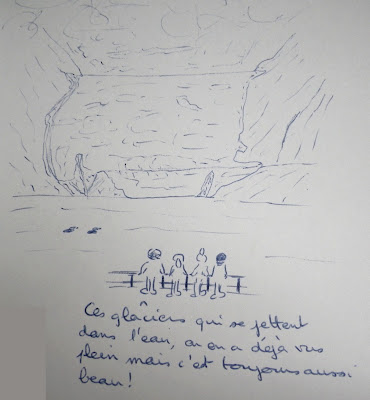 Ces glâciers qui se jettent
dans l'eau, on en a déjà vus
plein mais c'est toujours aussi
beau!